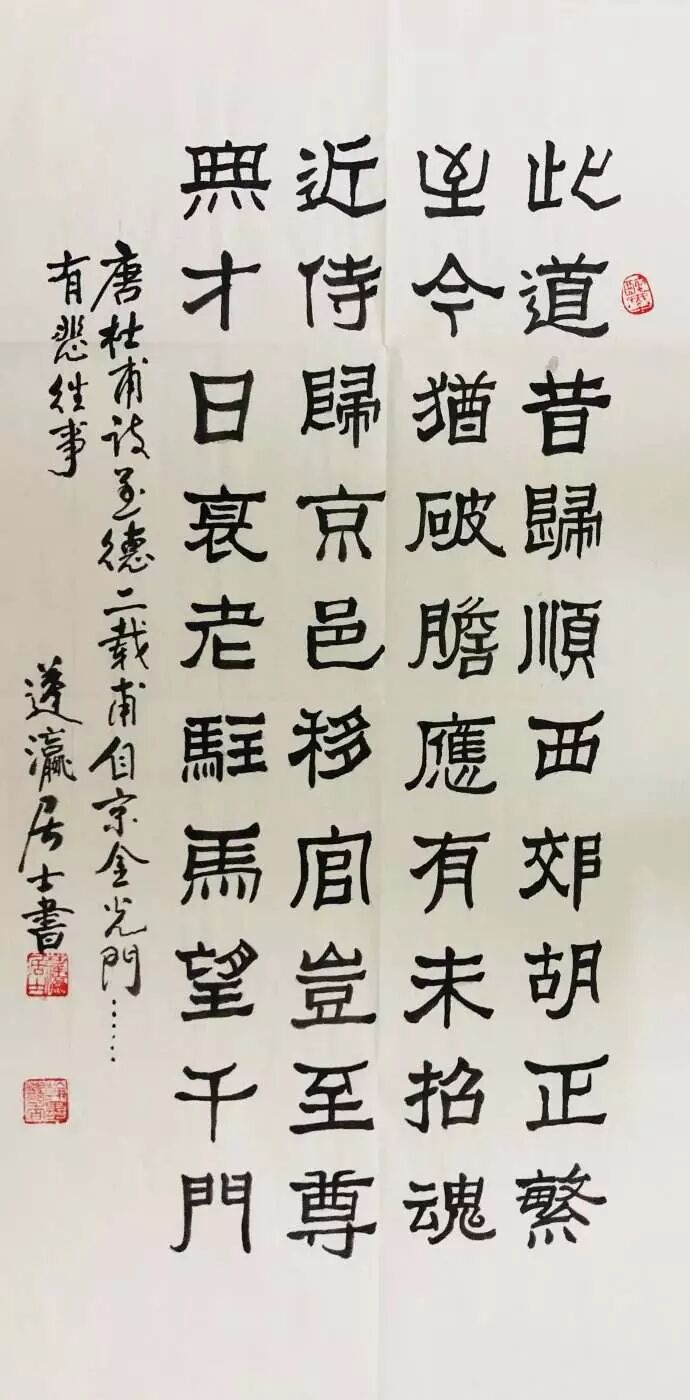 此道昔歸順西郊胡正繁
至今猶破膽應有未招魂
近侍歸京邑移官豈至尊
無才日衰老駐馬望千門
唐杜甫詩至德二載甫自京金光門……
有悲往事
蓬瀛居士書